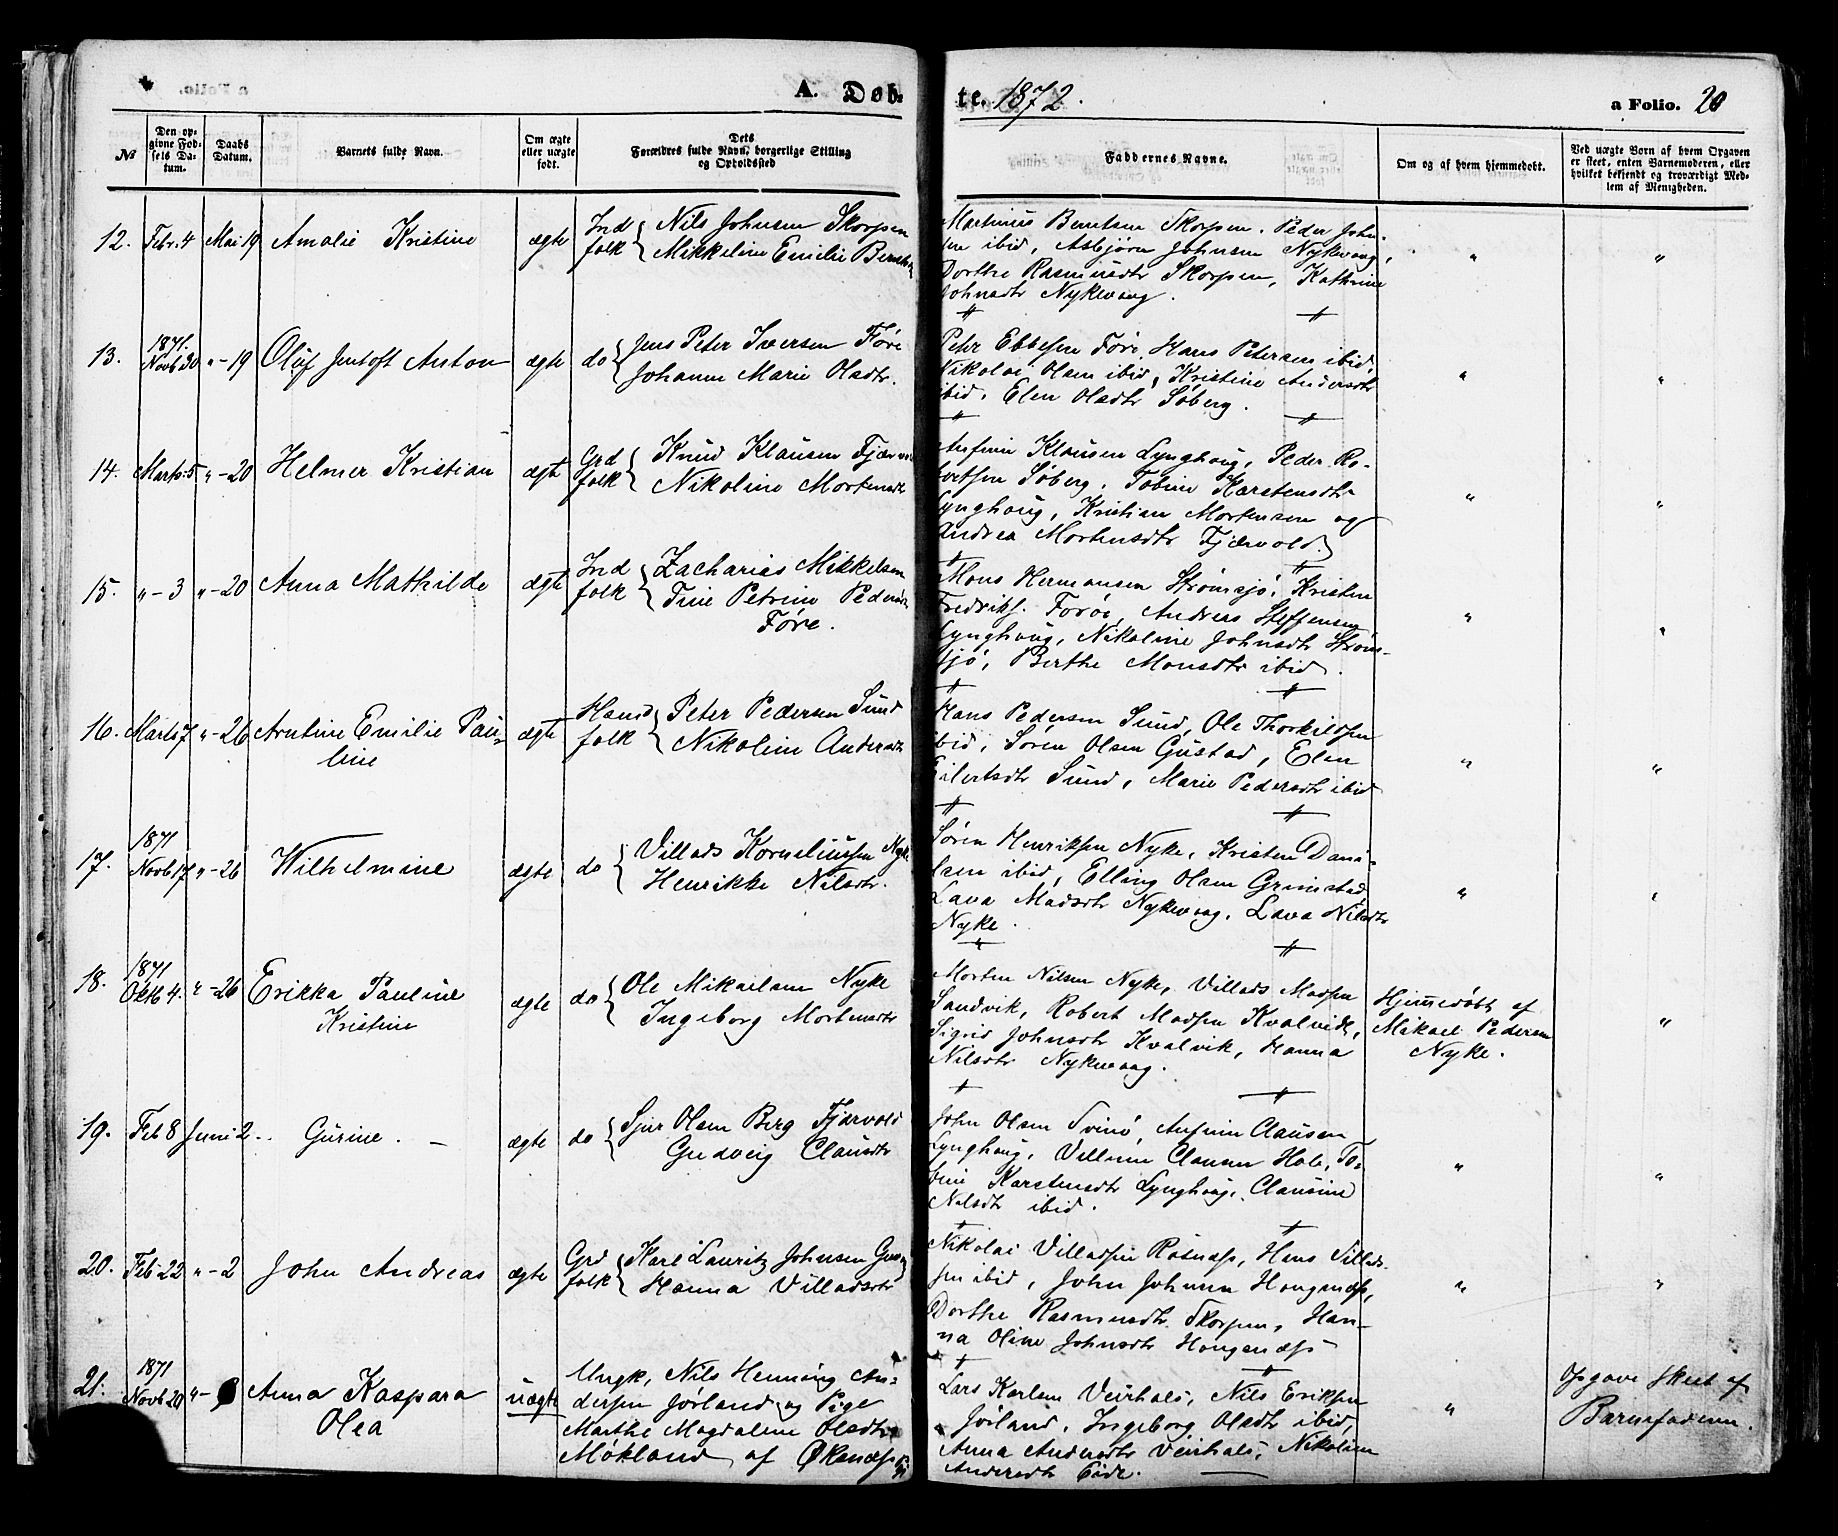 A. Døb-
te. 1872.
a Folio. 20
№
Den opgivne Fødsels Datum.
Daabs Datum.
Barnets fulde Navn.
Om ægte eller uægte født.
Dets Forældres fulde Navn, borgerlige Stilling og Opholdssted
Faddernes Navne.
Om og af hvem hjemmedøbt.
Ved uægte Børn af hvem Opgaven er skeet, enten Barnemoderen, eller hvilket bekjendt og troværdigt Medlem af Menigheden.
12. Febr. 4 Mai 19 Amalie Kristine ægte Ind folk { Nils Johnsen Skorpen
Mikkeline Emilie
Martinius Berntsen Skorpen. Peder John-
sen ibid, Asbjørn Johnsen Nykvaag,
Dorthe Rasmusdtr Skorpen, Kathrine
Johnsdtr Nykvaag.
" "
13. 1871. Novb 30 " - 19 Oluf Jentoft Anton ægte do { Jens Peter Iversen Føre
Johanna Marie Olsdtr.
Peter Ebbesen Føre, Hans Petersen ibid,
Nikolai Olsen ibid, Kristine Andersdtr
ibid, Elen Olsdtr Søberg.
" "
14. Marts 5 " - 20 Helmer Kristian ægte Grd folk { Knud Klausen
Nikoline Mortensdtr
Anfinn Klausen Lynghaug, Peder Ro-
bertsen Søberg, Tobine Karstensdtr
Lynghaug, Kristian Mortensen og
Andrea Mortensdtr Fjærvold.
" "
15. " - 3 " - 20 Anna Mathilde ægte Ind folk { Zacharias Mikkelsen
Tine Petrine
Føre.
Mons Hermansen Strømsjö, Kristen
Fredriks. Forøe, Andreas Steffensen
Lynghaug, Nikoline Johnsdtr Strøm-
sjö, Berthe Monsdtr ibid.
" "
16. Marts 7 " - 26 Arntine Emilie Pau-
line ægte Husmd folk { Peter Pedersen Sund
Nikoline Andersdtr
Hans Pedersen Sund, Ole Thorkildsen
ibid, Søren Olsen Gustad, Elen
Eilertsdtr Sund, Marie Pedersdtr ibid
" "
17. 1871 Novb 17 " - 26 Wilhelmine ægte do { Villads Korneliussen Nyke
Henrikke Nilsdtr.
Søren Henriksen Nyke, Kristen Dani-
elsen ibid, Elling Olsen Grimstad
Lava Madsdtr Nykvaag, Lava Nilsdtr
Nyke.
" "
18. 1871 Oktb 4. " - 26 Erikka Pauline
Kristine ægte do { Ole Mikaelsen Nyke
Ingeborg Mortensdtr
Morten Nilsen Nyke, Villads Madsen
Sandvik, Robert Madsen Kvalvik,
Sigrid Johnsdtr Kvalvik, Hanna
Nilsdtr Nykvaag.
Hjemmedøbt af
Mikael Pedersen
Nyke.
"
19. Feb 8 Juni 2 Gurine. - ægte do { Sjur Olsen Berg Fjærvold
Gudveig Clausdtr
John Olsen Svinö, Anfinn Clausen
Lynghaug, Villum Clausen Hole, To-
bine Karstensdtr Lynghaug, Clausine
Nilsdtr ibid.
" "
20. Feb 22 " - 2 John Andreas ægte Grd folk { Karl Lauritz Johnsen
Hanna Villadsdtr
Nikolai Villadsen Røsnæs, Hans Villad-
sen ibid, John Johnsen Haugnæs,
Dorthe Rasmusdtr Skorpen, Han-
na Oline Johnsdtr Haugenæs
" "
21. 1871 Novb 20 " - Anna Kaspara
Olea uægte Ungk, Nils Henning An-
dersen Jørland og Pige
Marthe Magdalene Olsdtr
Møkland af Øksnæs
Lars Karlsen Veirhals, Nils Eriksen
Jörland, Ingeborg Olsdtr ibid,
Anna Andersdtr Veirhals, Nikoline
Andersdtr Eide.
"
Opgave skeet af
Barnefaderen.